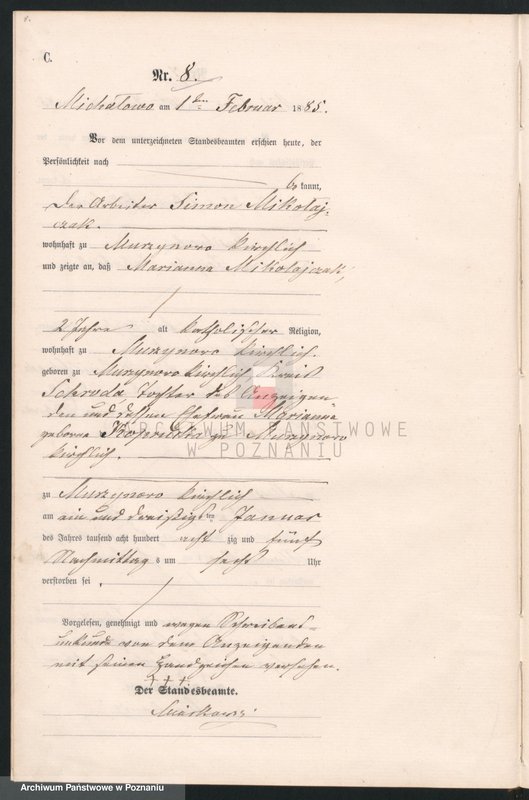 C.
Nr. 8.
Michałowo am 1ten Februar 1885.
Vor dem unterzeichneten Standesbeamten erschien heute, der
Persönlichkeit nach
bekannt,
der Arbeiter Simon Mikołaj-
czak.
wohnhaft zu Murzynowo kirchlich
und zeigte an, daß Marianna Mikolajczak,
2 Jahre alt katholischer Religion,
wohnhaft zu Murzynowo kirchlich.
geboren zu Murzynowo kirchlich Kreis
Schroda Tochter des Anzeigen-
den und dessen Ehefrau Marianna
geborne zu Murzynowo
kirchlich.
zu Murzynowo kirchlich
am ein und dreißigsten Januar
des Jahres tausend acht hundert achtzig und fünf
Nachmittags um sechs Uhr
verstorben sei.
Vorgelesen, genehmigt und wegen Schreibens-
unkunde von dem Anzeigenden
mit seinen Handzeichen versehen.
+++
Der Standesbeamte.
ARCHIWUM PAŃSTWOWE
W POZNANIU
Archiwum Państwowe w Poznaniu